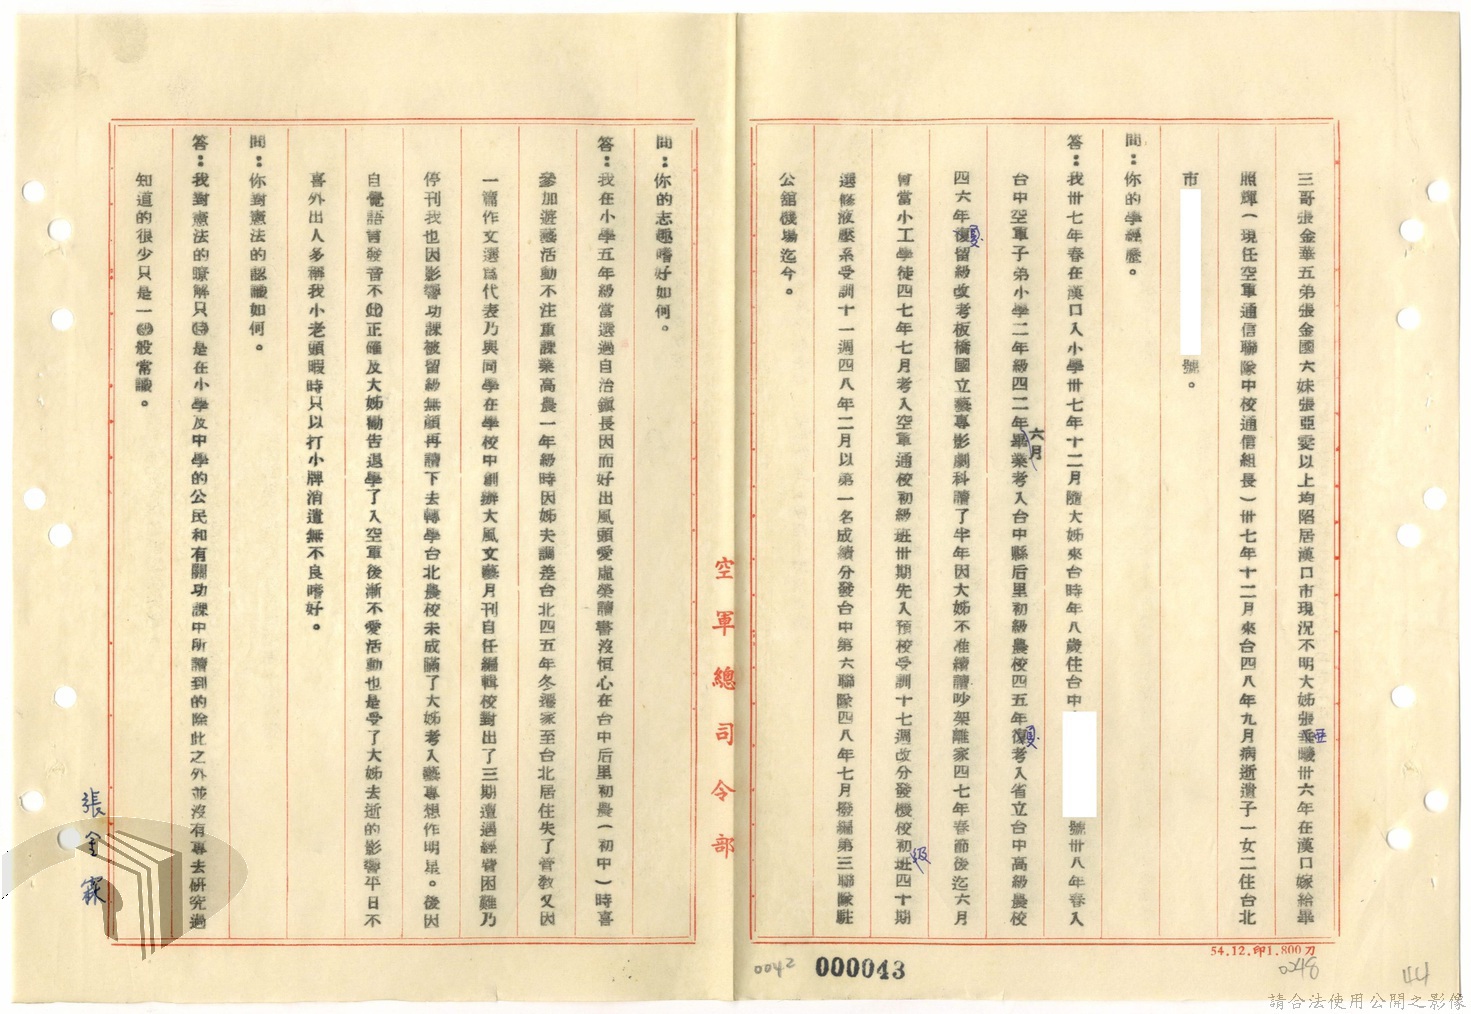 三哥張金華五弟張金國六妹張亞雯以上均陷居漢口市現況不明大姊張亞曦卅六年在漢口嫁給畢
照輝(現任空軍通信聯隊中校通信組長)卅七年十二月來台四八年九月病逝遺子一女二住台北
市 號。
問:你的學經歷。
答:我卅七年春在漢口入小學卅七年十二月隨大姊來台時年八歲住台中 號卅八年春入
台中空軍子弟小學二年級四二年六月畢業考入台中縣后里初級農校四五年夏考入省立台中高級農校
四六年夏留級改考板橋國立藝專影劇科讀了半年因大姊不准續讀吵架離家四七年春節後迄六月
曾當小工學徒四七年七月考入空軍通校初級班卅期先入預校受訓十七週改分發機校初級班四十期
選修液壓系受訓十一週四八年二月以第一名成績分發台中第六聯隊四八年七月廢編第三聯隊駐
公舘機場迄今。
問:你的志趣嗜好如何。
答:我在小學五年級當選過自治鎮長因而好出風頭愛虛榮讀書沒恒心在台中后里初農(初中)時喜
參加遊藝活動不注重課業高農一年級時因姊夫調差台北四五年冬遷家至台北居住失了管教又因
一篇作文選爲代表乃與同學在學校中創辦大風文藝月刊自任編輯校對出了三期遭遇經費困難乃
停刊我也因影響功課被留級無顏再讀下去轉學台北農校未成瞞了大姊考入藝專想作明星。後因
自覺語言發音不正確及大姊勸告退學了入空軍後漸不愛活動也是受了大姊去逝的影響平日不
喜外出人多稱我小老頭暇時只以打小牌消遣無不良嗜好。
問:你對憲法的認識如何。
答:我對憲法的瞭解只是在小學及中學的公民和有關功課中所讀到的除此之外並沒有專去研究過
知道的很少只是一般常識。
張金霖
空軍總司令部
54.12.印1.800刀
0042
000043
0048
44
請合法使用公開之影像